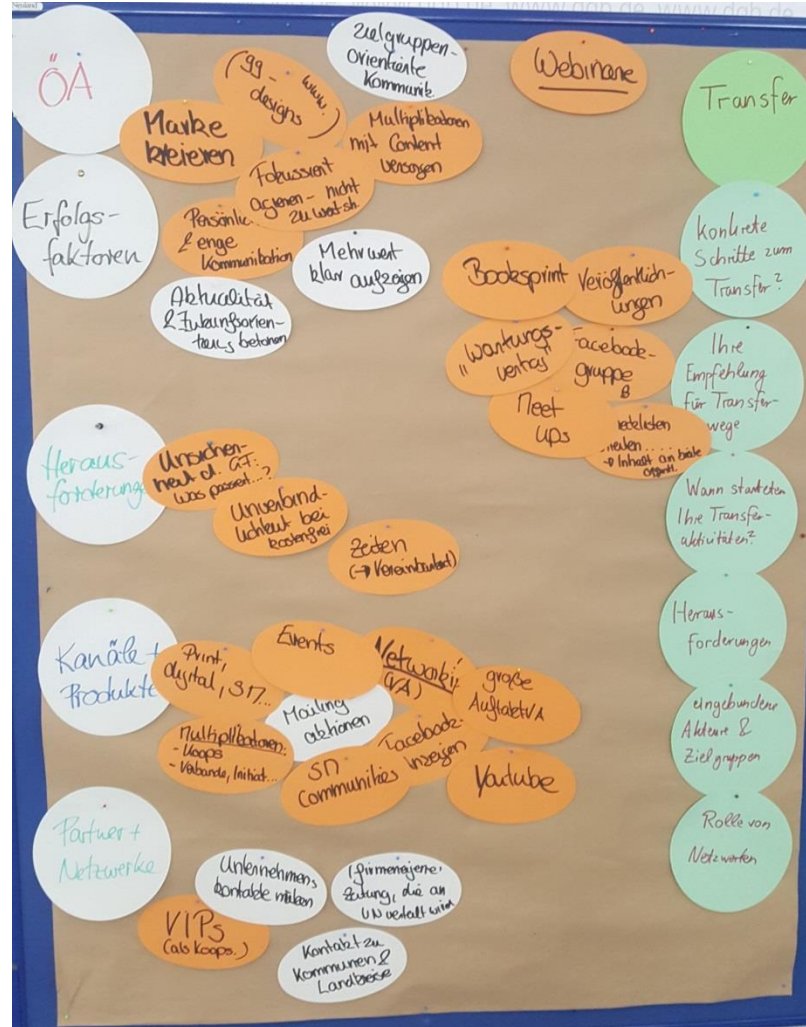 Neuland
www.dgb.de
www.dgb.de
ÖA
Zielgruppen-
orientierte
Kommunik
(99-
designs
www.
)
Marke
kreieren
Multiplikatoren
mit Content
versorgen
Webinare
Fokussiert
agieren - nicht
zu
Erfolgs-
faktoren
Persönlic
& enge
Kommunikation
Mehrwert
klar aufzeigen
Aktualität
& Zukunftsorien-
betonen
Booksprint
Veröffentlich-
ungen
"Wartungs-
vertrag"
acebook-
gruppe
Meet
ups
→ Inhalt an
Heraus-
forderunge
Unsicher-
heit d. GF:
was passiert...?
Unverbind-
lichkeit bei
kostenfrei
Zeiten
(→ Vereinbarkeit)
Kanäle +
Produkte
Print,
digital, SM...
Events
Networki
(VA)
große
AuftaktVA
Mailing
aktionen
Multiplikatoren:
- Koops
- Verbände, Initiat...
SM
Communities
Facebook-
nzeigen
Youtube
Partner +
Netzwerke
Unternehmens
kontakte nutzen
(firmeneigene
Zeitung, die an
UN verteilt wird
VIPs
(als Koops.)
Kontakt zu
Kommunen &
Landkreise
Transfer
Konkrete
Schritte zum
Transfer?
Ihre
Empfehlung
für Transfer-
wege
Wann starteten
Ihre Transfer-
aktivitäten?
Heraus-
forderungen
eingebundene
Akteure &
Zielgruppen
Rolle von
Netzwerken